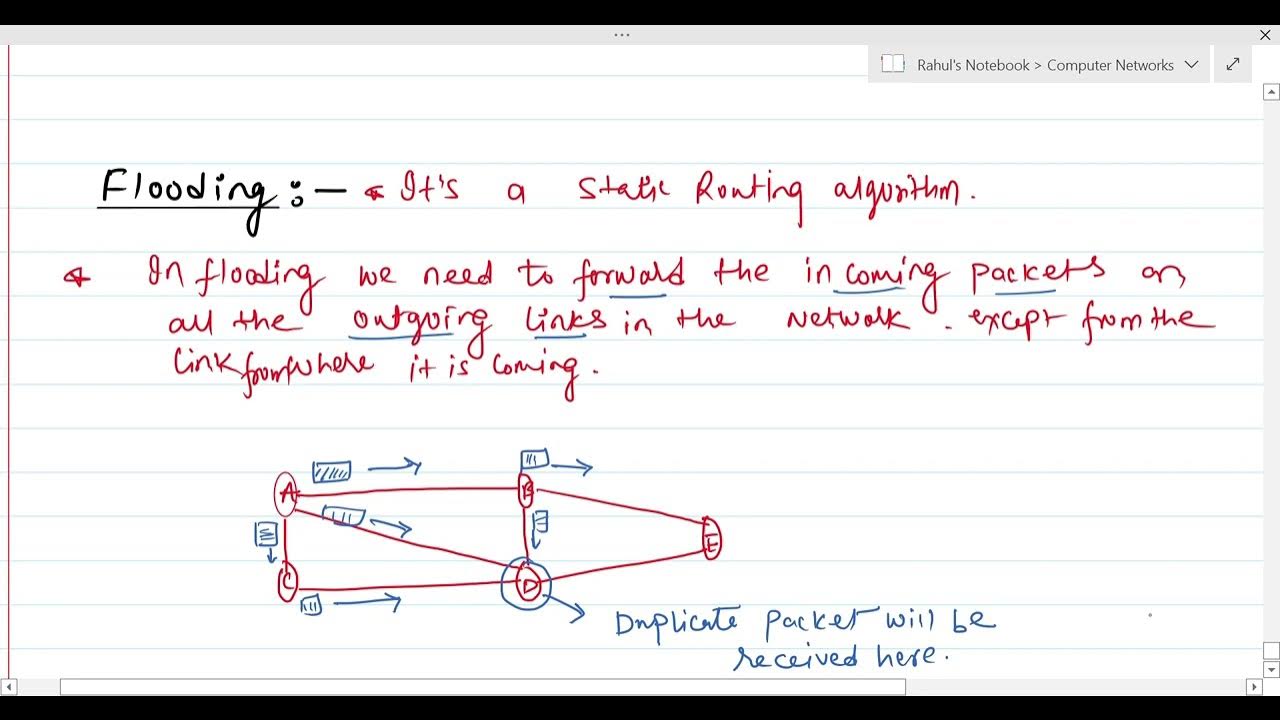 Rahul's Notebook > Computer Networks
Flooding :- * It's a static Routing algorithm.
* In flooding we need to forward the incoming packets on
all the outgoing links in the network. except from the
link from where it is coming.
A
B
E
C
D
Duplicate packet will be
received here.